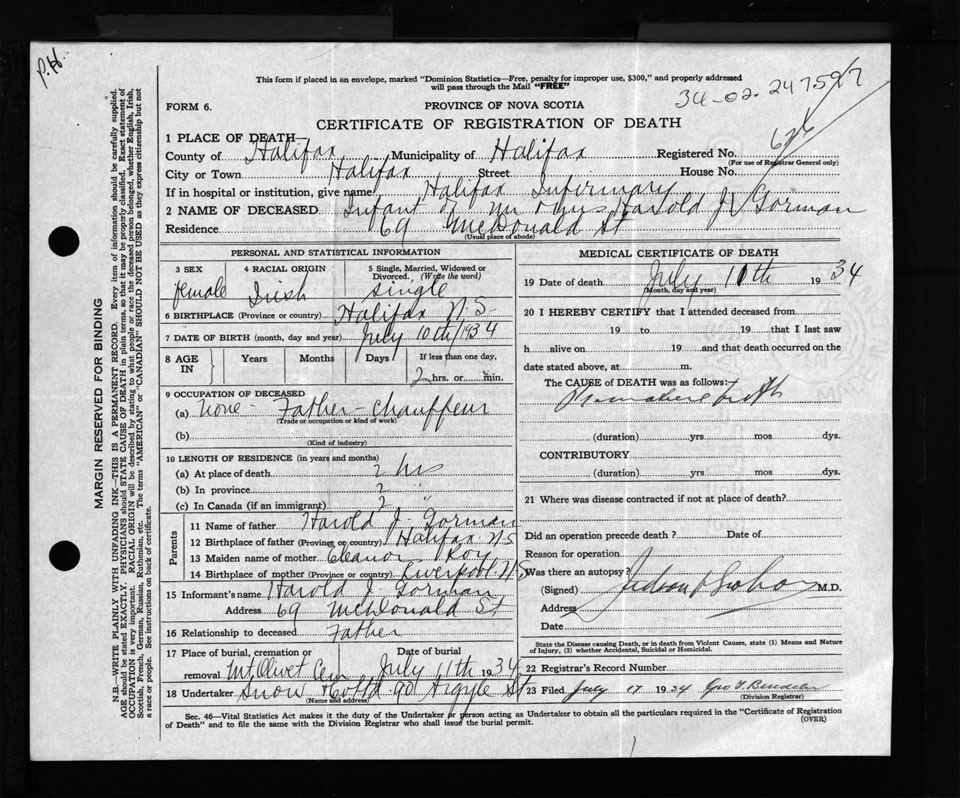 P.H.
This form if placed in an envelope, marked "Dominion Statistics—Free, penalty for improper use, $300," and properly addressed
will pass through the Mail "FREE"
34-02-247597
FORM 6.
PROVINCE OF NOVA SCOTIA
CERTIFICATE OF REGISTRATION OF DEATH
1 PLACE OF DEATH—
County of Halifax Municipality of Halifax Registered No.
(For use of Registrar General only)
City or Town Halifax Street House No.
If in hospital or institution, give name Halifax Infirmary
2 NAME OF DECEASED Infant of Mr & Mrs Harold J Gorman
Residence 69 McDonald St
(Usual place of abode)
PERSONAL AND STATISTICAL INFORMATION
3 SEX 4 RACIAL ORIGIN 5 Single, Married, Widowed or
Divorced. (Write the word)
female Irish single
6 BIRTHPLACE (Province or country) Halifax N.S.
7 DATE OF BIRTH (month, day and year) July 10th/1934
8 AGE IN Years Months Days If less than one day,
2 hrs. or min.
9 OCCUPATION OF DECEASED
(a) None - Father - Chauffeur
(Trade or occupation or kind of work)
(b)
(Kind of industry)
10 LENGTH OF RESIDENCE (in years and months)
(a) At place of death 2 hrs
(b) In province 2 "
(c) In Canada (if an immigrant) 2 "
Parents
11 Name of father Harold J. Gorman
12 Birthplace of father (Province or country) Halifax N S
13 Maiden name of mother Eleanor Roy
14 Birthplace of mother (Province or country) Liverpool N S
15 Informant's name Harold J. Gorman
Address 69 McDonald St
16 Relationship to deceased Father
17 Place of burial, cremation or Date of burial
removal Mt Olivet Cem July 11th 1934
18 Undertaker Snow & Co Ltd 90 Argyle St
(Name and address)
MEDICAL CERTIFICATE OF DEATH
19 Date of death July 10th 1934
(Month, day and year)
20 I HEREBY CERTIFY that I attended deceased from
19 to 19 that I last saw
h alive on 19 and that death occurred on the
date stated above, at m.
The CAUSE of DEATH was as follows:
Premature birth
(duration) yrs mos dys.
CONTRIBUTORY
(duration) yrs mos dys.
21 Where was disease contracted if not at place of death?
Did an operation precede death ? Date of
Reason for operation
Was there an autopsy?
(Signed) M.D.
Address
Date
State the Disease causing Death, or in death from Violent Causes, state (1) Means and Nature
of Injury, (2) whether Accidental, Suicidal or Homicidal.
22 Registrar's Record Number
23 Filed July 17 1934
(Division Registrar)
Sec. 46—Vital Statistics Act makes it the duty of the Undertaker or person acting as Undertaker to obtain all the particulars required in the "Certificate of Registration
of Death" and to file the same with the Division Registrar who shall issue the burial permit.
(OVER)
MARGIN RESERVED FOR BINDING
N.B.—WRITE PLAINLY WITH UNFADING INK—THIS IS A PERMANENT RECORD. Every item of information should be carefully supplied.
AGE should be stated EXACTLY. PHYSICIANS should STATE CAUSE OF DEATH in plain terms, so that it may be properly classified. Exact statement of
OCCUPATION is very important. RACIAL ORIGIN will be described by stating to what people or race the deceased person belonged, whether English, Irish,
Scottish, French, German, Russian, Ruthenian, etc. The terms "AMERICAN" or "CANADIAN" SHOULD NOT BE USED as they express citizenship but not
a race or people. See instructions on back of certificate.